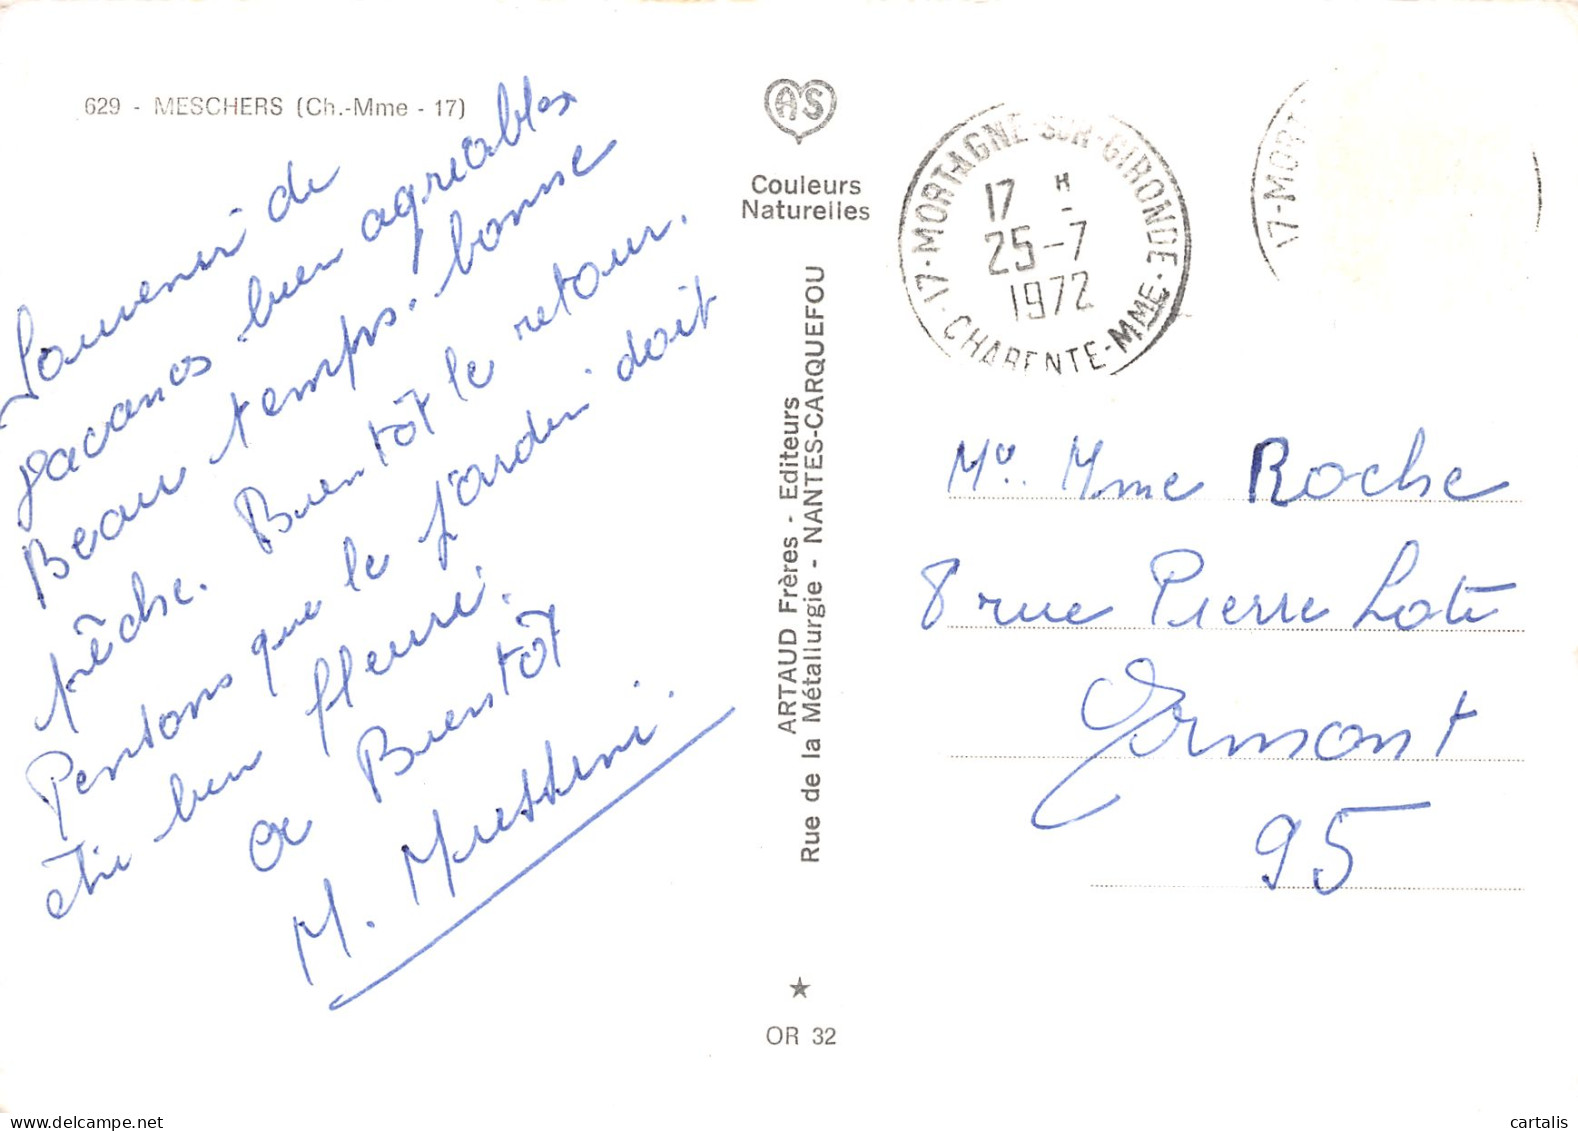 629 - MESCHERS (Ch.-Mme - 17)
Souvenir de
vacances bien agréables
Beau temps. bonne
pêche. Bientôt le retour.
Pensons que le jardin doit
être bien fleuri.
a Bientôt
M.
AS
Couleurs
Naturelles
ARTAUD Frères - Editeurs
Rue de la Métallurgie - NANTES-CARQUEFOU
OR 32
17-MORTAGNE-SUR-GIRONDE
17 H
25-7
1972
CHARENTE-MME
17-MORT
Mr. Mme Roche
8 rue Pierre Loti
Ermont
95
cartalis